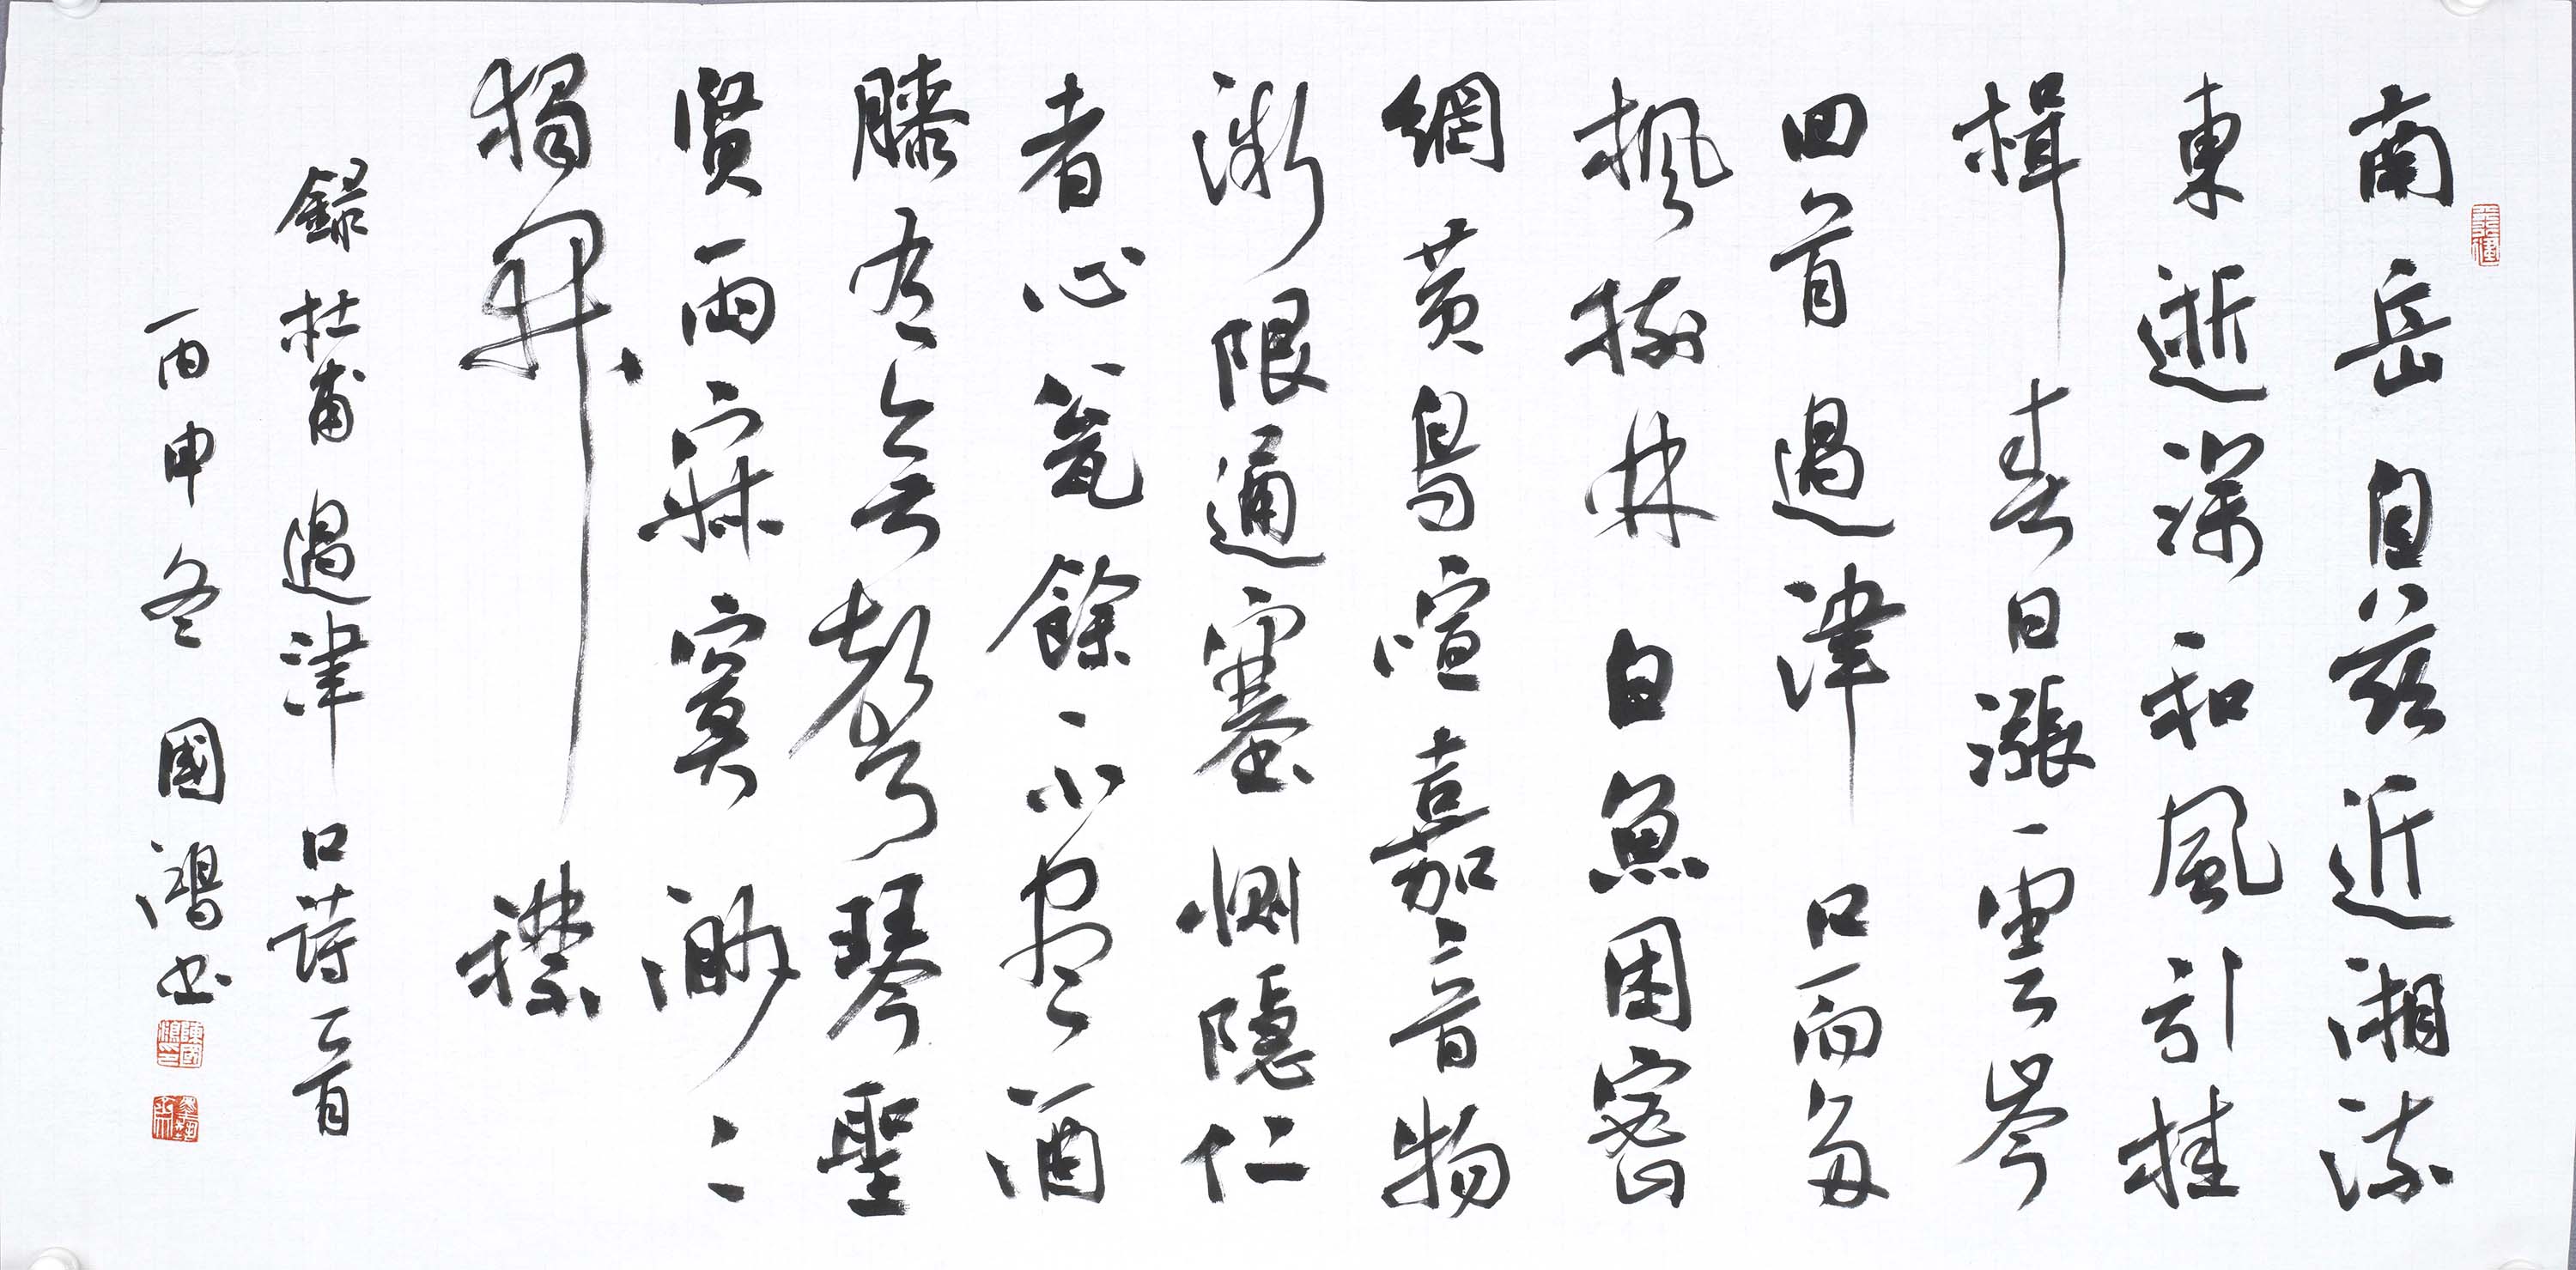 南岳自茲近湘流
東逝深和風引桂
楫春日漲雲岑
回首過津口而多
楓樹林白魚困密
網黃鳥喧嘉音物
微限通塞惻隱仁
者心瓮餘不盡酒
膝有無聲琴聖
賢兩寂寞渺〻
獨開襟
錄杜甫過津口詩一首
丙申冬國鴻書
陳國鴻印